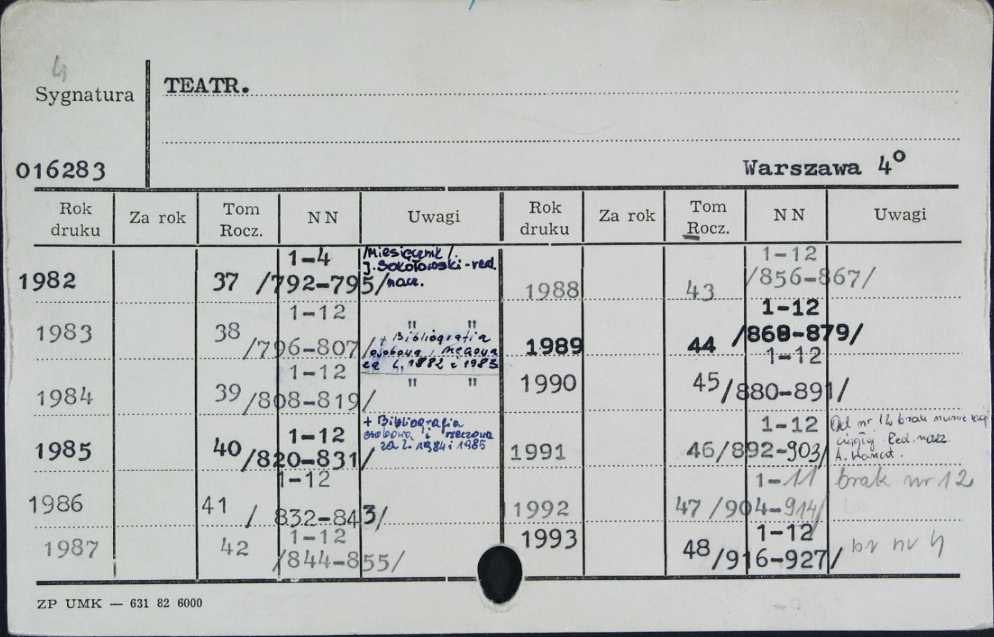 4
Sygnatura
TEATR.
016283
Warszawa 4°
Rok druku Za rok Tom Rocz. NN Uwagi Rok druku Za rok Tom Rocz. NN Uwagi
1982 37 1-4 /792-795/ /Miesięcznik/. J. Sokołowski-red. nacz.
1983 38 1-12 /796-807/ " " + Bibliografia osobowa i rzeczowa za l. 1982 i 1983
1984 39 1-12 /808-819/ " "
1985 40 1-12 /820-831/ + Bibliografia osobowa i rzeczowa za l. 1984 i 1985
1986 41 1-12 / 832-843/
1987 42 1-12 /844-855/
1988 43 1-12 /856-867/
1989 44 1-12 /868-879/
1990 45 1-12 /880-891/
1991 46 1-12 /892-903/ Od nr 12 brak numeracji ciągłej Red. nacz. A.
1992 47 1-11 /904-914/ brak nr 12
1993 48 1-12 /916-927/ br nr 4
ZP UMK — 631 82 6000